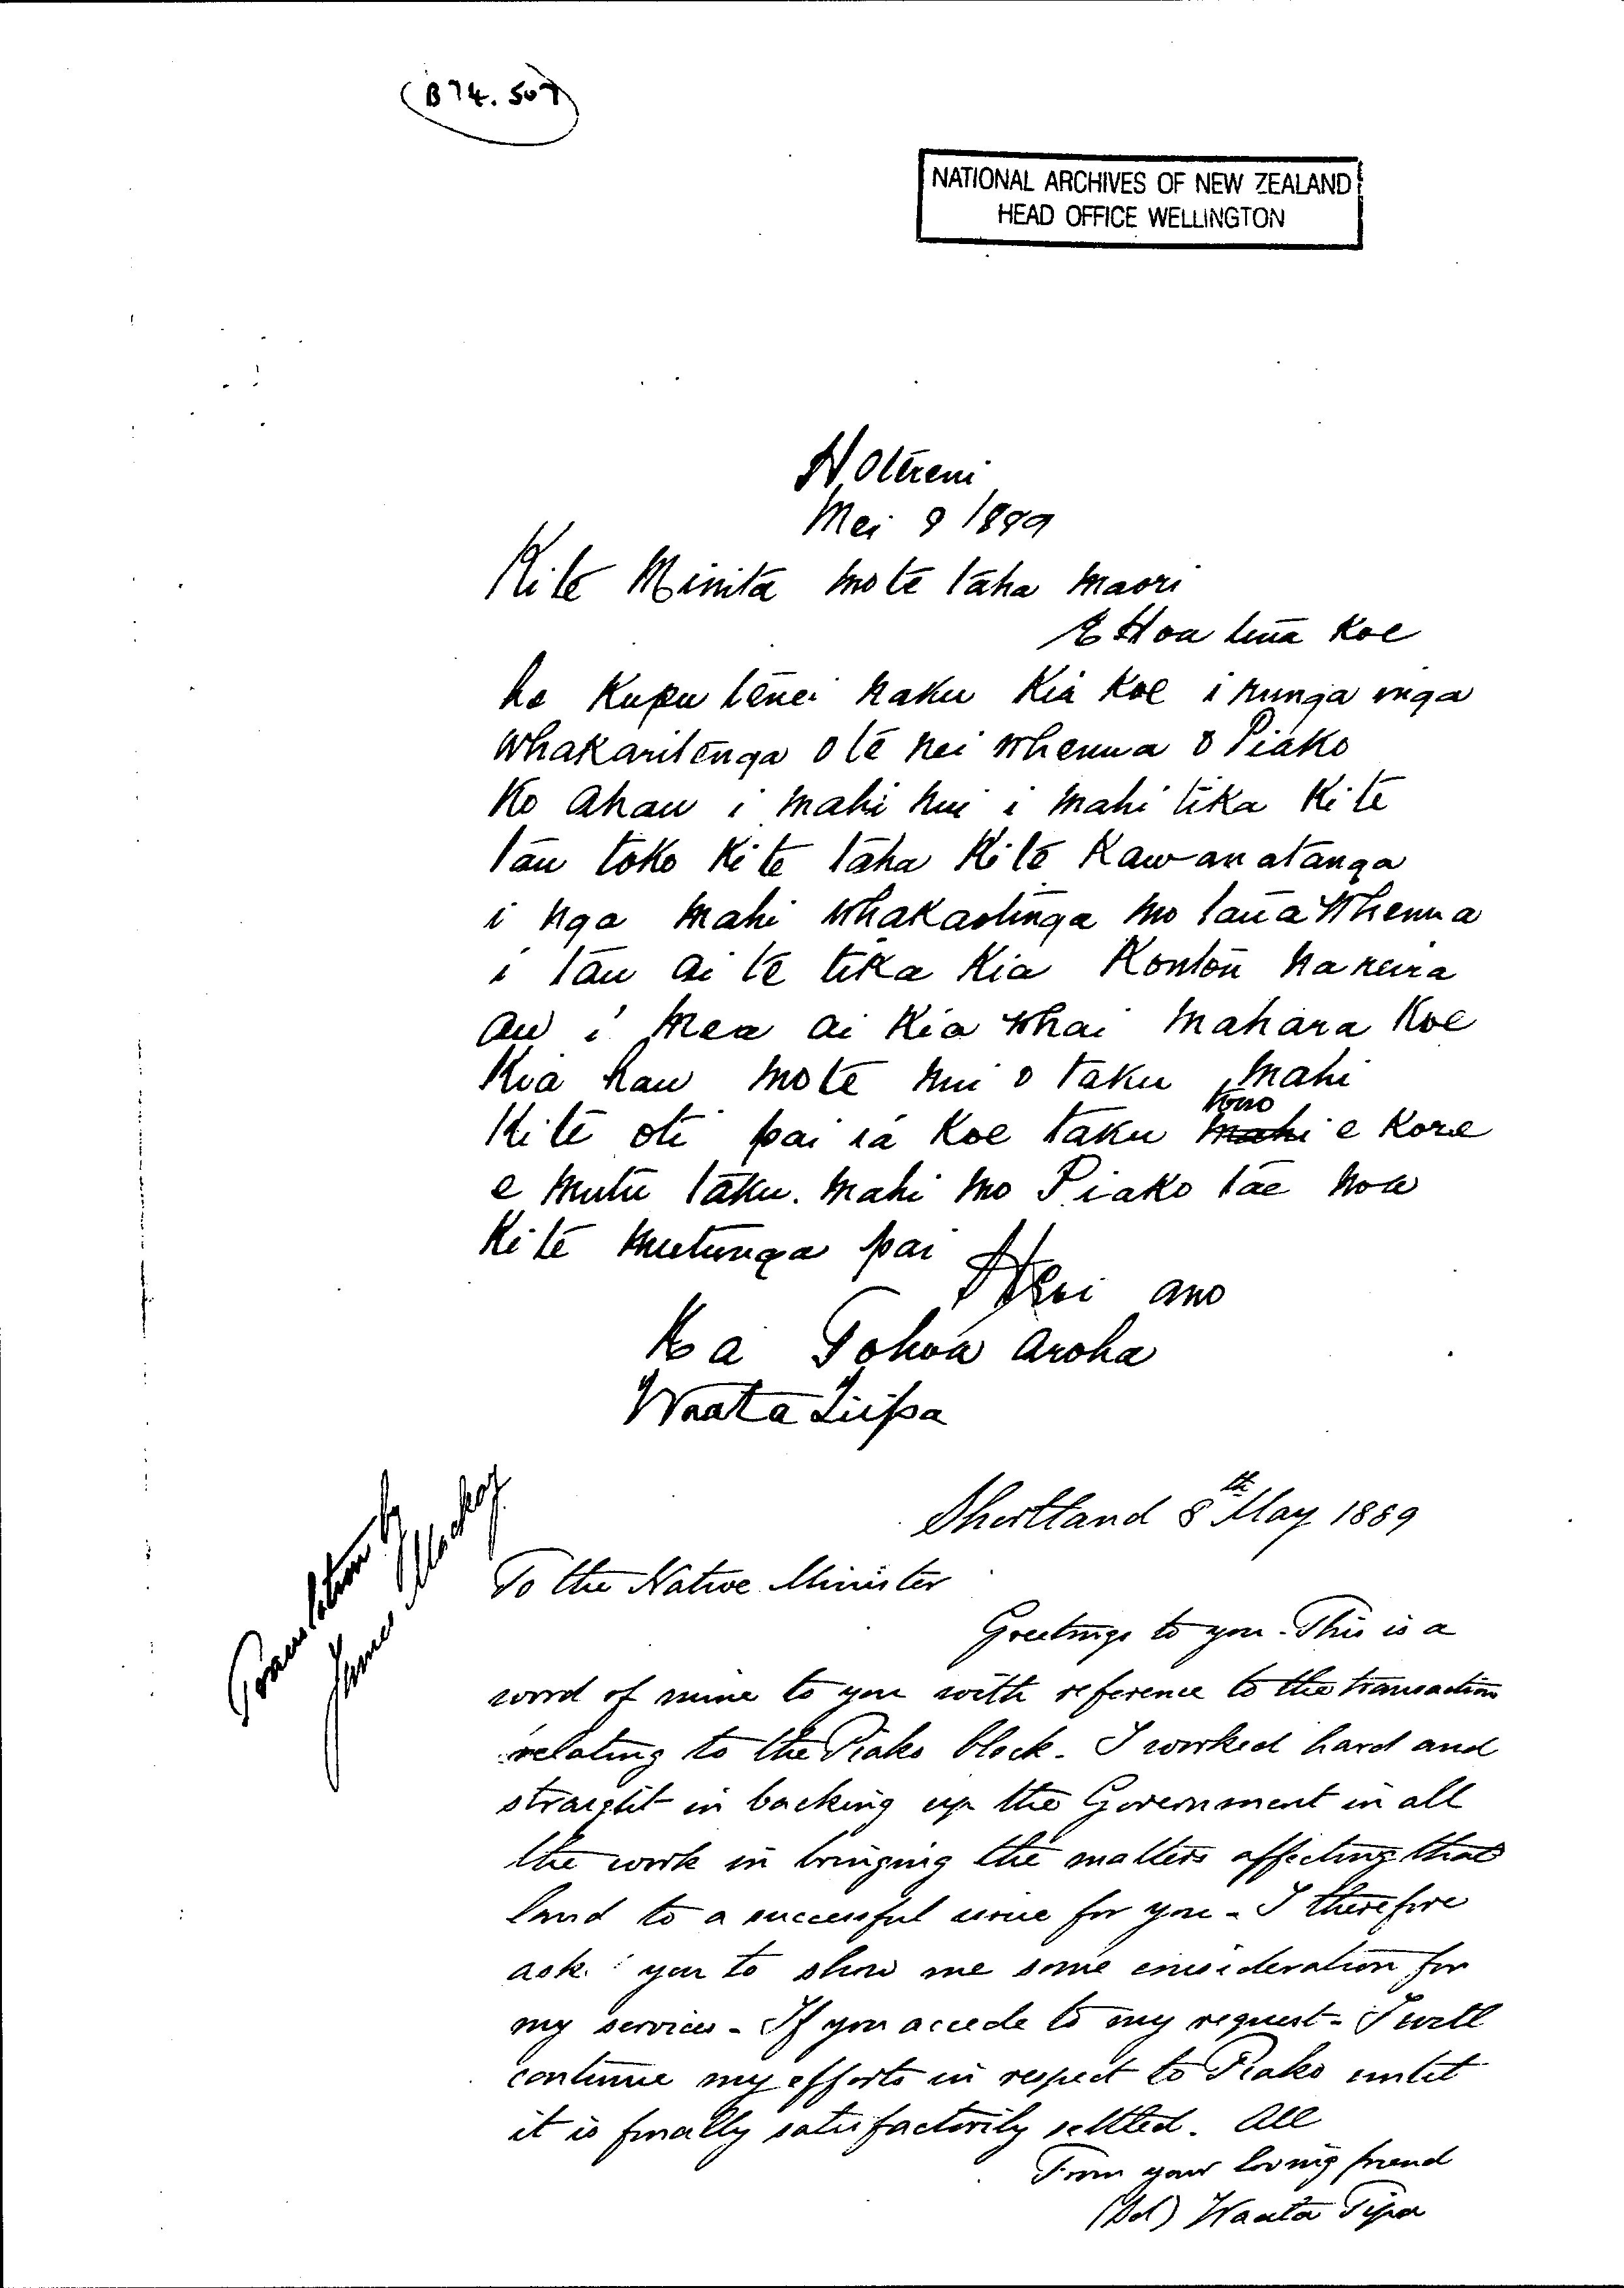 (B 74. 507)
NATIONAL ARCHIVES OF NEW ZEALAND
HEAD OFFICE WELLINGTON
Hotereni
Mei 8 1889
Kite Minita mote taha maori
E Hoa tena Koe
he Kupu tenei naku Kia Koe i runga inga
whakaritenga ote nei whenua o Piako
Ko ahau i mahi nui i mahi tika Kite
tau toko Kite taha Kite Kawanatanga
i nga mahi whakaotinga mo taua whenua
i tau ai te tika Kia Koutou na reira
au i mea ai Kia whai mahara Koe
Kia hau mote nui o taku mahi
Kite oti pai ia Koe taku mahi tono e Kore
e mutu taku mahi mo Piako tae noa
Kite mutunga pai
Heoi ano
Na Tohoa aroha
Waata Tiipa
Translation by
James Mackay
Shortland 8th May 1889
To the Native Minister
Greetings to you. This is a
word of mine to you with reference to the transaction
relating to the Piako block. I worked hard and
straight in backing up the Government in all
the work in bringing the matters affecting that
land to a successful issue for you - I therefore
ask you to show me some consideration for
my services - If you accede to my request - I will
continue my efforts in respect to Piako until
it is finally satisfactorily settled. All
From your loving friend
(Sd) Waata Tipa